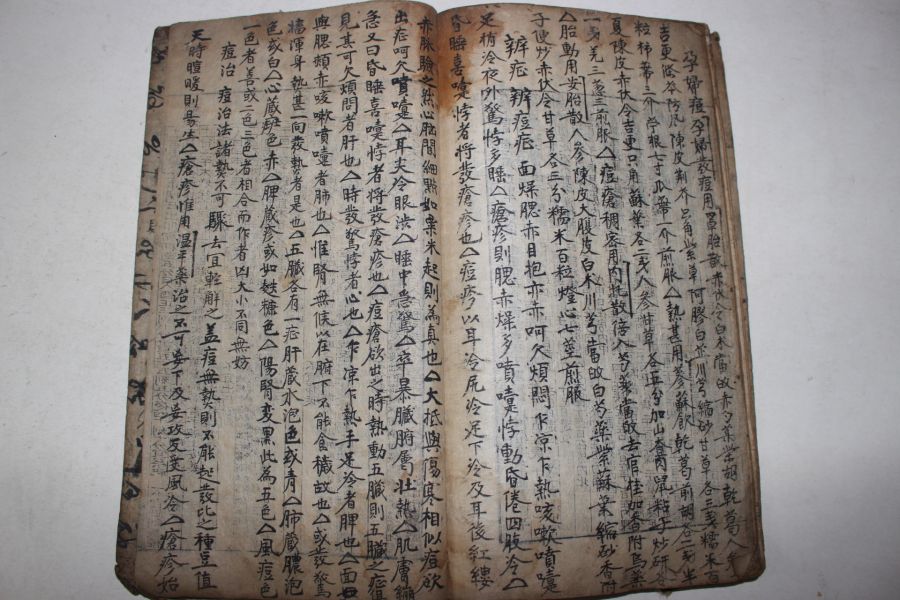 孕婦痘孕婦發痘用罩胎散赤茯令白朮當歸赤勺藥柴胡乾葛人參
吉更條芩防風陳皮荊芥只角紫草阿膠白芷川芎縮砂甘草各三戔糯米百
粒柿蒂三介 煎服△熱甚用參蘇飮乾葛前胡各三戔半
夏陳皮赤伏令吉更只角蘇葉各二戔人參甘草各五分加山査肉鼠粘子炒研各
一戔羌三逐三煎服△痘瘡稠密用內托散倍人芎藥當歸去官桂加香附烏藥
△胎動用安胎散人參陳皮大腹皮白朮川芎當歸白芍藥紫蘇葉縮砂香附
子便炒赤伏令甘草各三分糯米百粒燈心七莖煎服
辨疟 辨痘疟 面燥腮赤目抱亦赤呵欠煩悶乍凉乍熱咳嗽噴嚏
足稍冷夜外驚悸多睡△瘡疹則腮赤燥多噴嚏悸動昏倦四肢冷△
昏睡喜嚏悸者將發瘡疹也△痘疹以耳冷尻冷足下冷及耳後紅縷
赤脉驗之然心胸間細點如粟米起則爲真也△大抵與傷寒相似痘欲
出疟呵欠噴嚏△耳尖冷眼澁△睡中驚△卒暴臟腑属壯熱△肌膚繃
急又曰昏睡喜嚏悸者將發瘡疹也△痘瘡欲出之時熱動五臟則五臟之疟
見其呵欠煩悶者肝也△時發驚悸者心也△乍凉乍熱手足冷者脾也△面
與腮頰赤咳嗽噴嚏者肺也△惟腎無候以在腑下不能食穢故也△或發驚
搐渾身熱甚一向發熱者是也△五臟各有一疟肝藏水泡色或青△肺藏膿泡
色或白△心藏斑色赤△脾藏疹或如麩糠色△陽腎变黑此為五色△風痘色
一色者善或二色三色者相合而作者凶大小不同無妨
痘治 痘治法諸熱不可驟去宜輕解之盖痘無熱則不能起發比之種豆值
天時暄暖則易生△瘡疹惟用温平藥治之不可妄下及妄攻反受風冷△瘡疹始